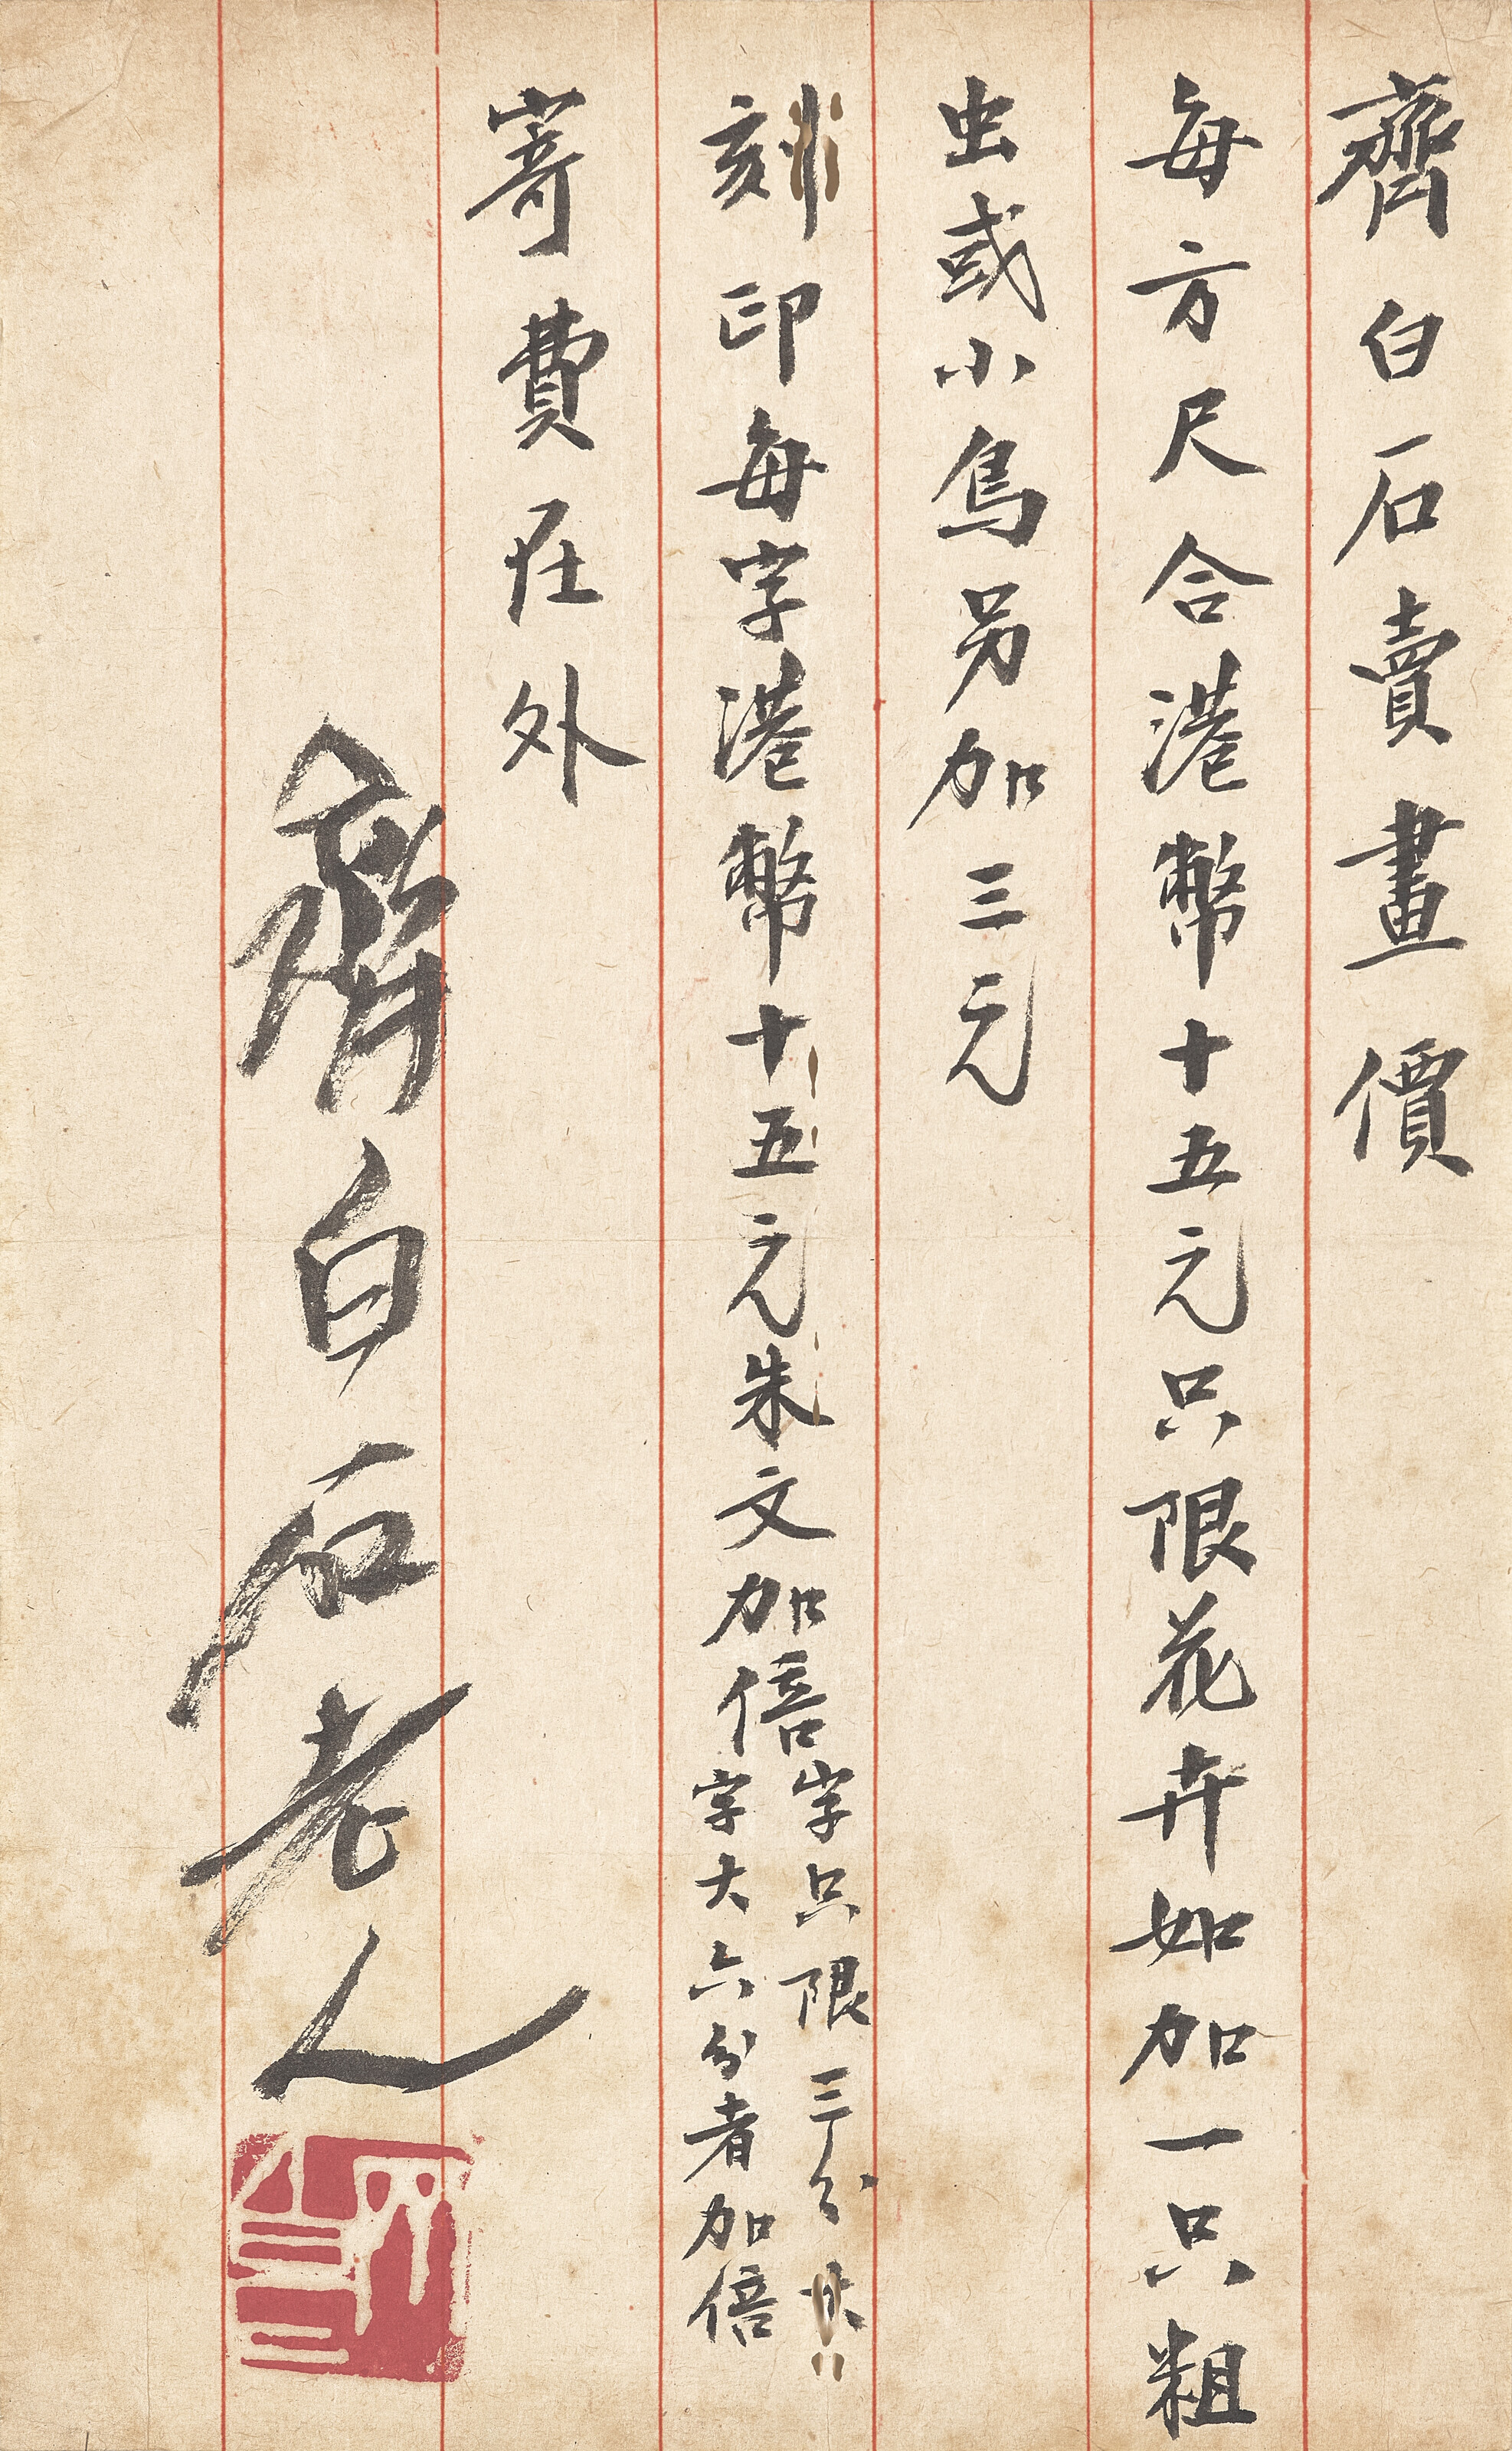 齊白石賣畫價
每方尺合港幣十五元只限花卉如加一只粗
虫或小鳥另加三元
刻印每字港幣十五元朱文加倍
字只限三分
字大六分者加倍
寄費在外
齊白石老人